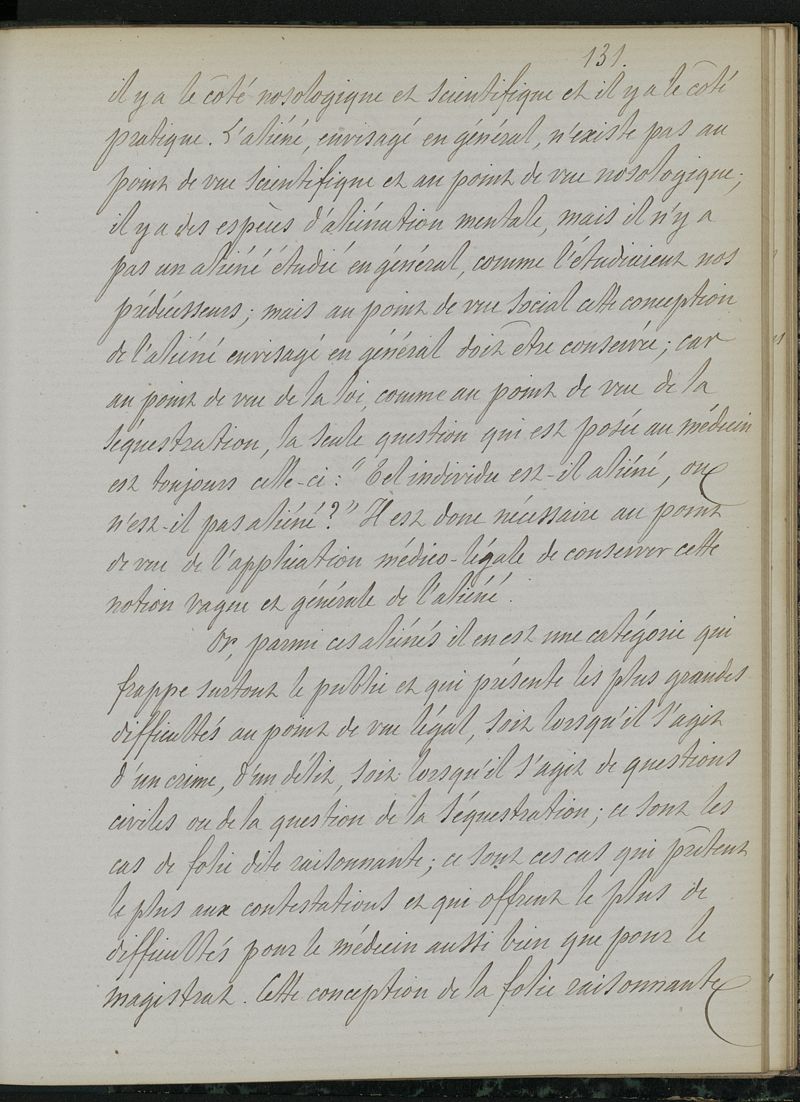 131.
il y a le côté nosologique et scientifique et il y a le côté
pratique. L'aliéné, envisagé en général, n'existe pas au
point de vue scientifique et au point de vue nosologique;
il y a des espèces d'aliénation mentale, mais il n'y a
pas un aliéné étudié en général, comme l'étudiaient nos
prédécesseurs; mais au point de vue social cette conception
de l'aliéné envisagé en général doit être conservée; car
au point de vue de la loi, comme au point de vue de la
séquestration, la seule question qui est posée au médecin
est toujours celle-ci: "Tel individu est-il aliéné, ou
n'est-il pas aliéné?" Il est donc nécessaire au point
de vue de l'application médico-légale de conserver cette
notion vague et générale de l'aliéné.
Or, parmi ces aliénés il en est une catégorie qui
frappe surtout le public et qui présente les plus grandes
difficultés au point de vue légal, soit lorsqu'il s'agit
d'un crime, d'un délit, soit lorsqu'il s'agit de questions
civiles ou de la question de la séquestration; ce sont les
cas de folie dite raisonnante; ce sont ces cas qui prêtent
le plus aux contestations et qui offrent le plus de
difficultés pour le médecin aussi bien que pour le
magistrat. Cette conception de la folie raisonnante